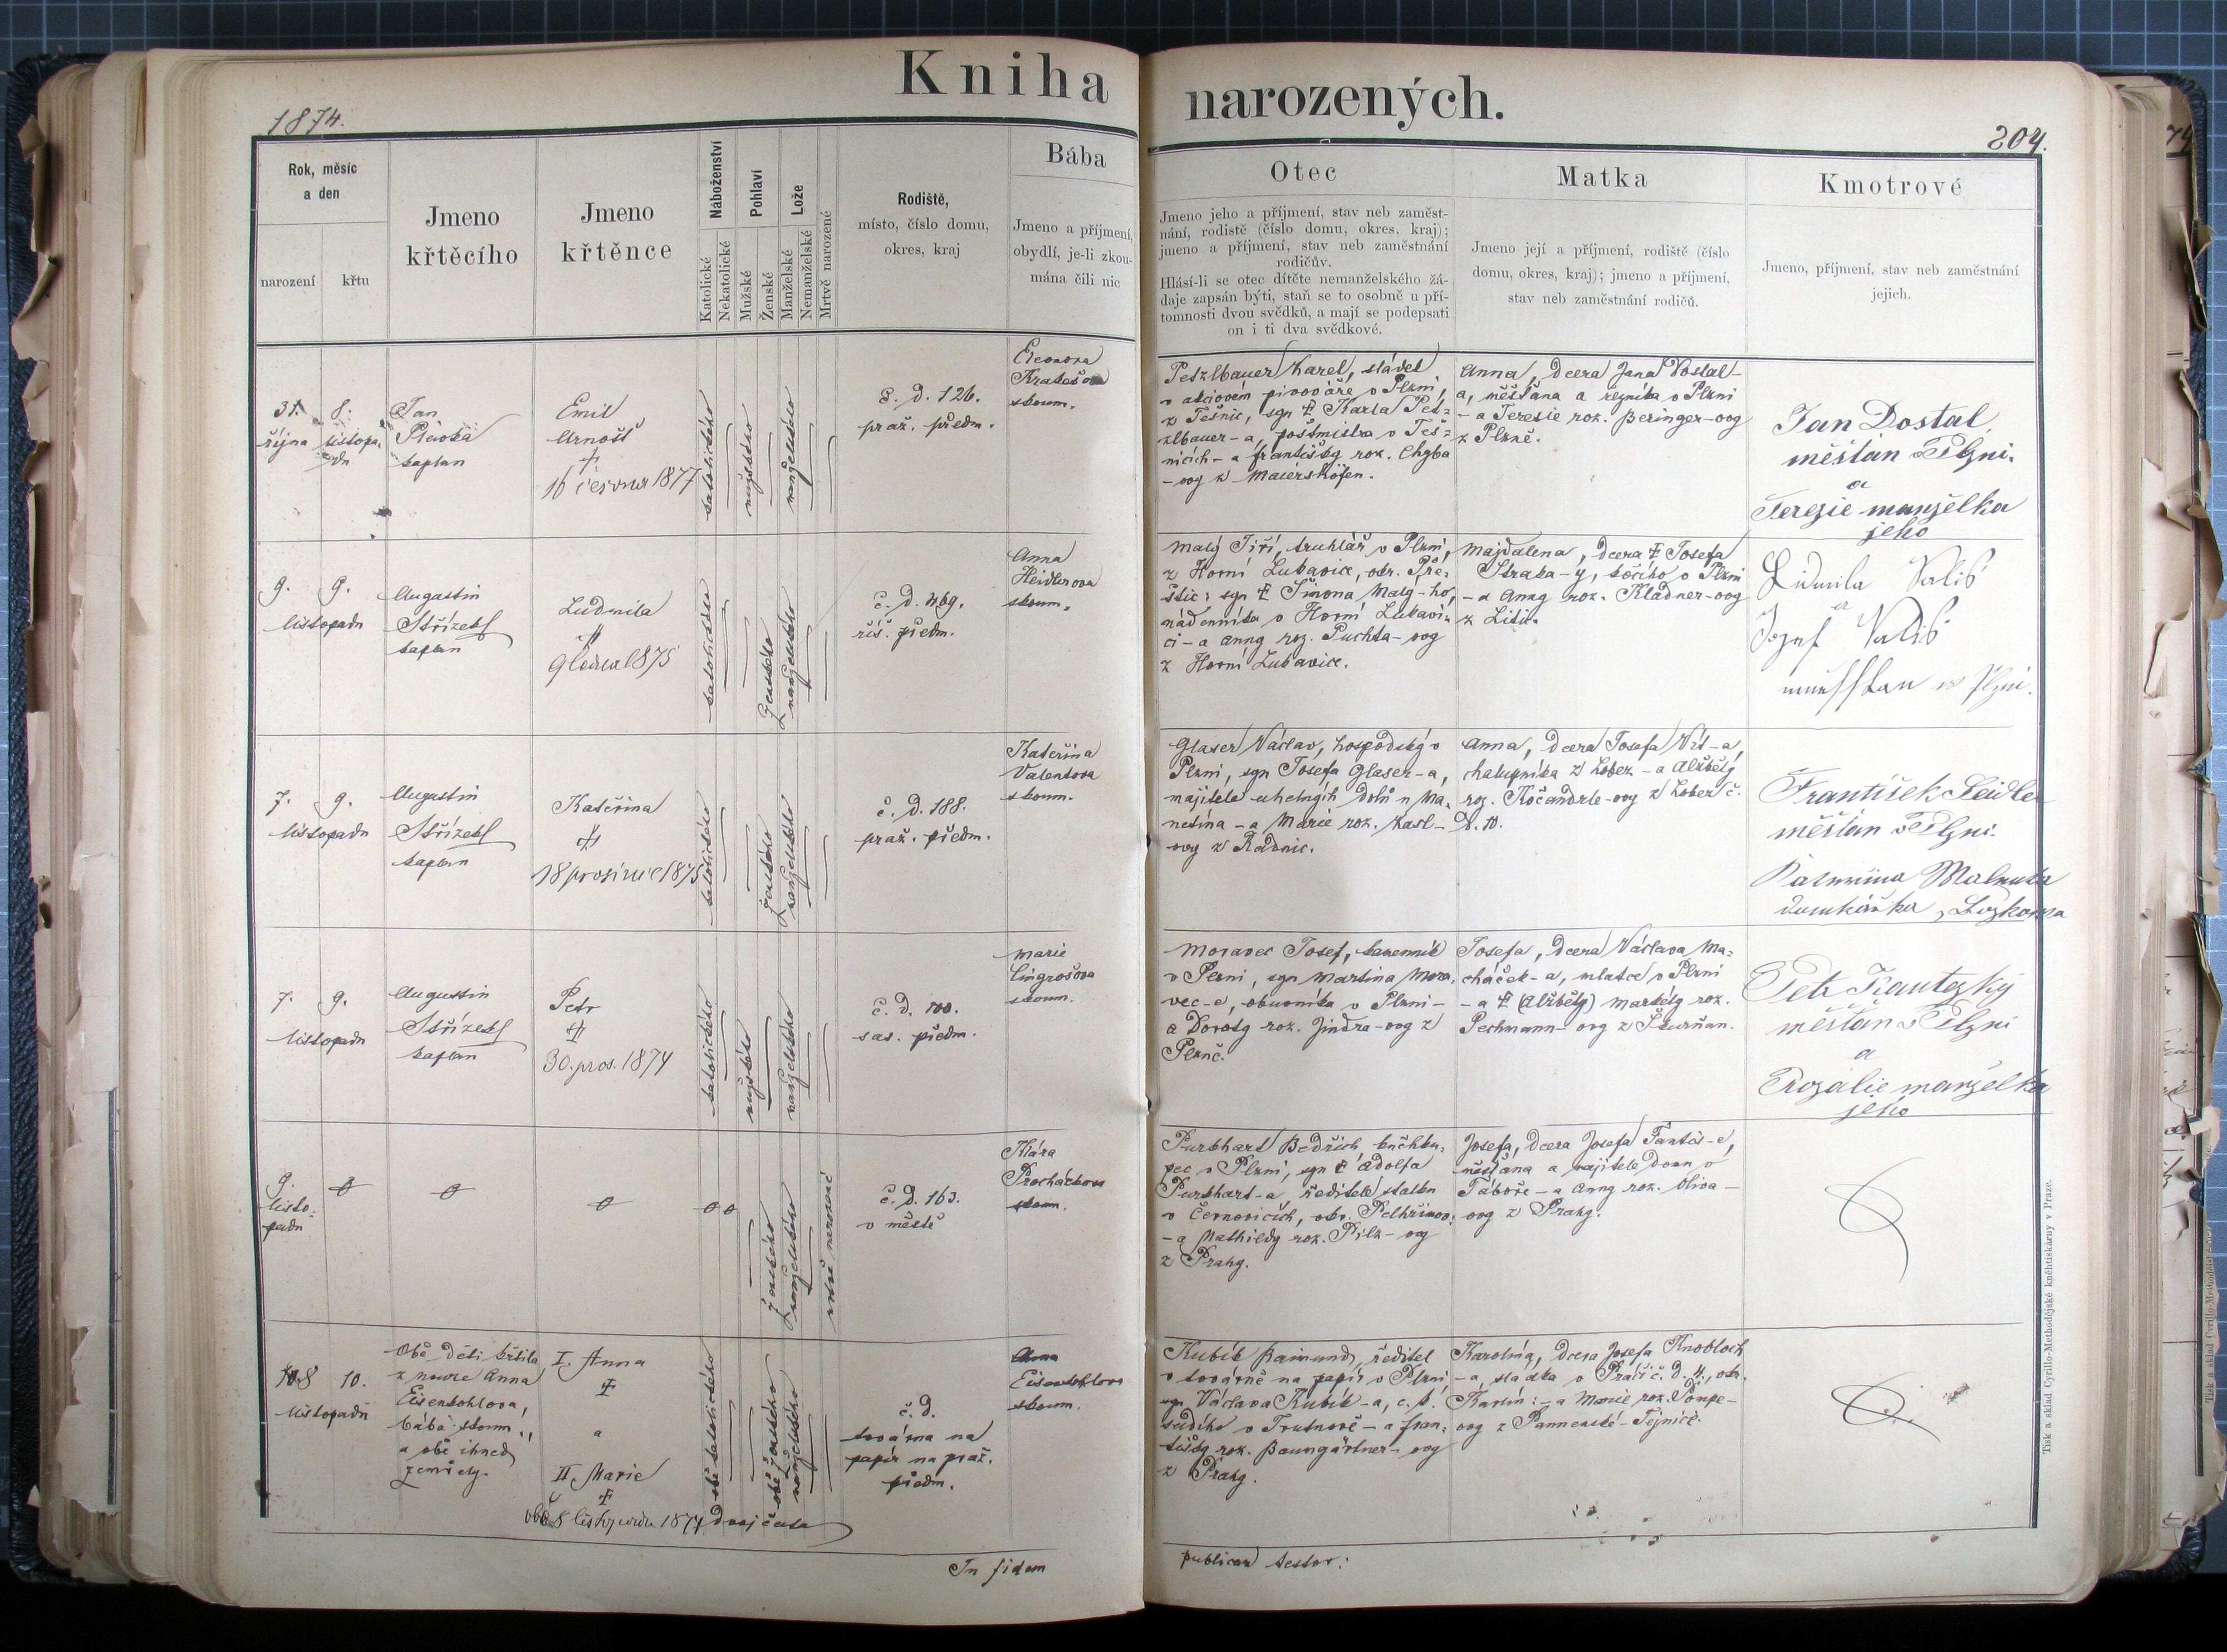 Kniha narozených.
1874.
204.
Rok, měsíc
a den
narození
křtu
Jmeno
křtěcího
Jmeno
křtěnce
Náboženství
Katolické
Nekatolické
Pohlaví
Mužské
Ženské
Lože
Manželské
Nemanželské
Mrtvě narozené
Rodiště,
místo, číslo domu,
okres, kraj
Bába
Jmeno a příjmení,
obydlí, je-li zkou-
mána čili nic
Otec
Jmeno jeho a příjmení, stav neb zaměst-
nání, rodiště (číslo domu, okres, kraj);
jmeno a příjmení, stav neb zaměstnání
rodičův.
Hlásí-li se otec dítěte nemanželského žá-
daje zapsán býti, staň se to osobně u pří-
tomnosti dvou svědků, a mají se podepsati
on i ti dva svědkové.
Matka
Jmeno její a příjmení, rodiště (číslo
domu, okres, kraj); jmeno a příjmení,
stav neb zaměstnání rodičů.
Kmotrové
Jmeno, příjmení, stav neb zaměstnání
jejich.
31. 8.
října listopa-
du
Jan
kaplan
Emil
Arnošt
+
16 června 1877
katolického
mužského
manželského
č. d. 126.
praž. předm.
Eleonora
skoum.
Petzlbauer Karel, sládek
v akciovém pivováře v Plzni,
z Těšnic, syn ‡ Karla Pet-
zlbauer-a, poštmistra v Těš-
nicích - a Františky roz. Chyba
-ovy z Maiershöfen.
Anna, dcera Jana Dostal-
a, měšťana a řezníka v Plzni
- a Terezie roz. Beringer-ovy
z Plzně.
Jan Dostal,
měšťan v Plzni.
a
Terezie manželka
jeho
9. 9.
listopadu
Augustin
Střízek
kaplan
Ludmila
9 1875
katolického
ženského
manželského
č. d. 469.
říš. předm.
Anna
Heidlerova
skoum.
Malý Jiří, truhlář v Plzni,
z Horní Lukavice, okr. Pře-
štic: syn ‡ Šimona Malý-ho,
nádenníka v Horní Lukavi-
ci - a Anny roz. Puchta-ovy
z Horní Lukavice.
Majdalena, dcera ‡ Josefa
Straka-y, kočího v Plzni
- a Anny roz. Kládner-ovy
z Litic.
Lidmila
a
Josef
v Plzni.
7. 9.
listopadu
Augustin
Střízek
kaplan
Kateřina
‡
18 prosince 1875
katolického
ženského
manželského
č. d. 188.
praž. předm.
Kateřina
Valentova
skoum.
Glaser Václav, hospodský v
Plzni, syn Josefa Glaser-a,
majitele uhelných dolů u Ma-
netína - a Marie roz. Kasl-
ovy z Radnic.
Anna, dcera Josefa
chalupníka z Lobez - a Alžběty
roz. Kočandrle-ovy z Lobez č.
d. 10.
František Seidl
měšťan v Plzni.
7. 9.
listopadu
Augustin
Střízek
kaplan
Petr
‡
30. pros. 1874
katolického
mužského
manželského
č. d. 100.
sas. předm.
Marie
Lingrošova
skoum.
Moravec Josef, kamenník
v Plzni, syn Martina Mora-
vec-e, obuvníka v Plzni -
a Doroty roz. Jindra-ovy z
Plzně.
Josefa, dcera Václava Ma-
cháček-a, mlatce v Plzni
- a ‡ (Alžběty) Markéty roz.
Pechmann-ovy z Skurňan.
Petr Kautezky
měšťan v Plzni
a
Rozalie manželka
jeho
9.
listo-
padu
ženského
manželského
mrtvě narozené
č. d. 163.
v městě
Klára
Procházkova
skoum.
Purkhart Bedřich, knihku-
pec v Plzni, syn ‡ Adolfa
Purkhart-a, ředitele statku
v Černovicích, okr. Pelhřimov:
- a Mathildy roz. Pilz-ovy
z Prahy.
Josefa, dcera Josefa
měšťana a majitele domu v
Táboře - a Anny roz. Oliva-
ovy z Prahy.
8 10.
listopadu
Obě děti křtila
z nouze Anna
Eisenkohlova,
bába skoum.,
a obě ihned
zemřely.
I. Anna
‡
a
II. Marie
‡
obě 8 listopadu 1874 dvojčata
obě katolického
obě ženského
manželského
č. d.
továrna na
papír na praž.
předm.
Anna
Eisenkohlova
skoum.
Kubík Raimund, ředitel
v továrně na papír v Plzni
syn Václava Kubík-a, c. k.
sudího v Trutnově - a Fran-
tišky roz. Baumgärtner-ovy
z Prahy.
Karolína, dcera Josefa Knobloch
-a, sládka v Pračí č. d. 4., okr.
Karlín: - a Marie roz. Pompe-
ovy z Pannenské-Tejnice.
In fidem publicam testor:
Tisk a sklad Cyrillo-Methodějské kněhtiskárny v Praze.